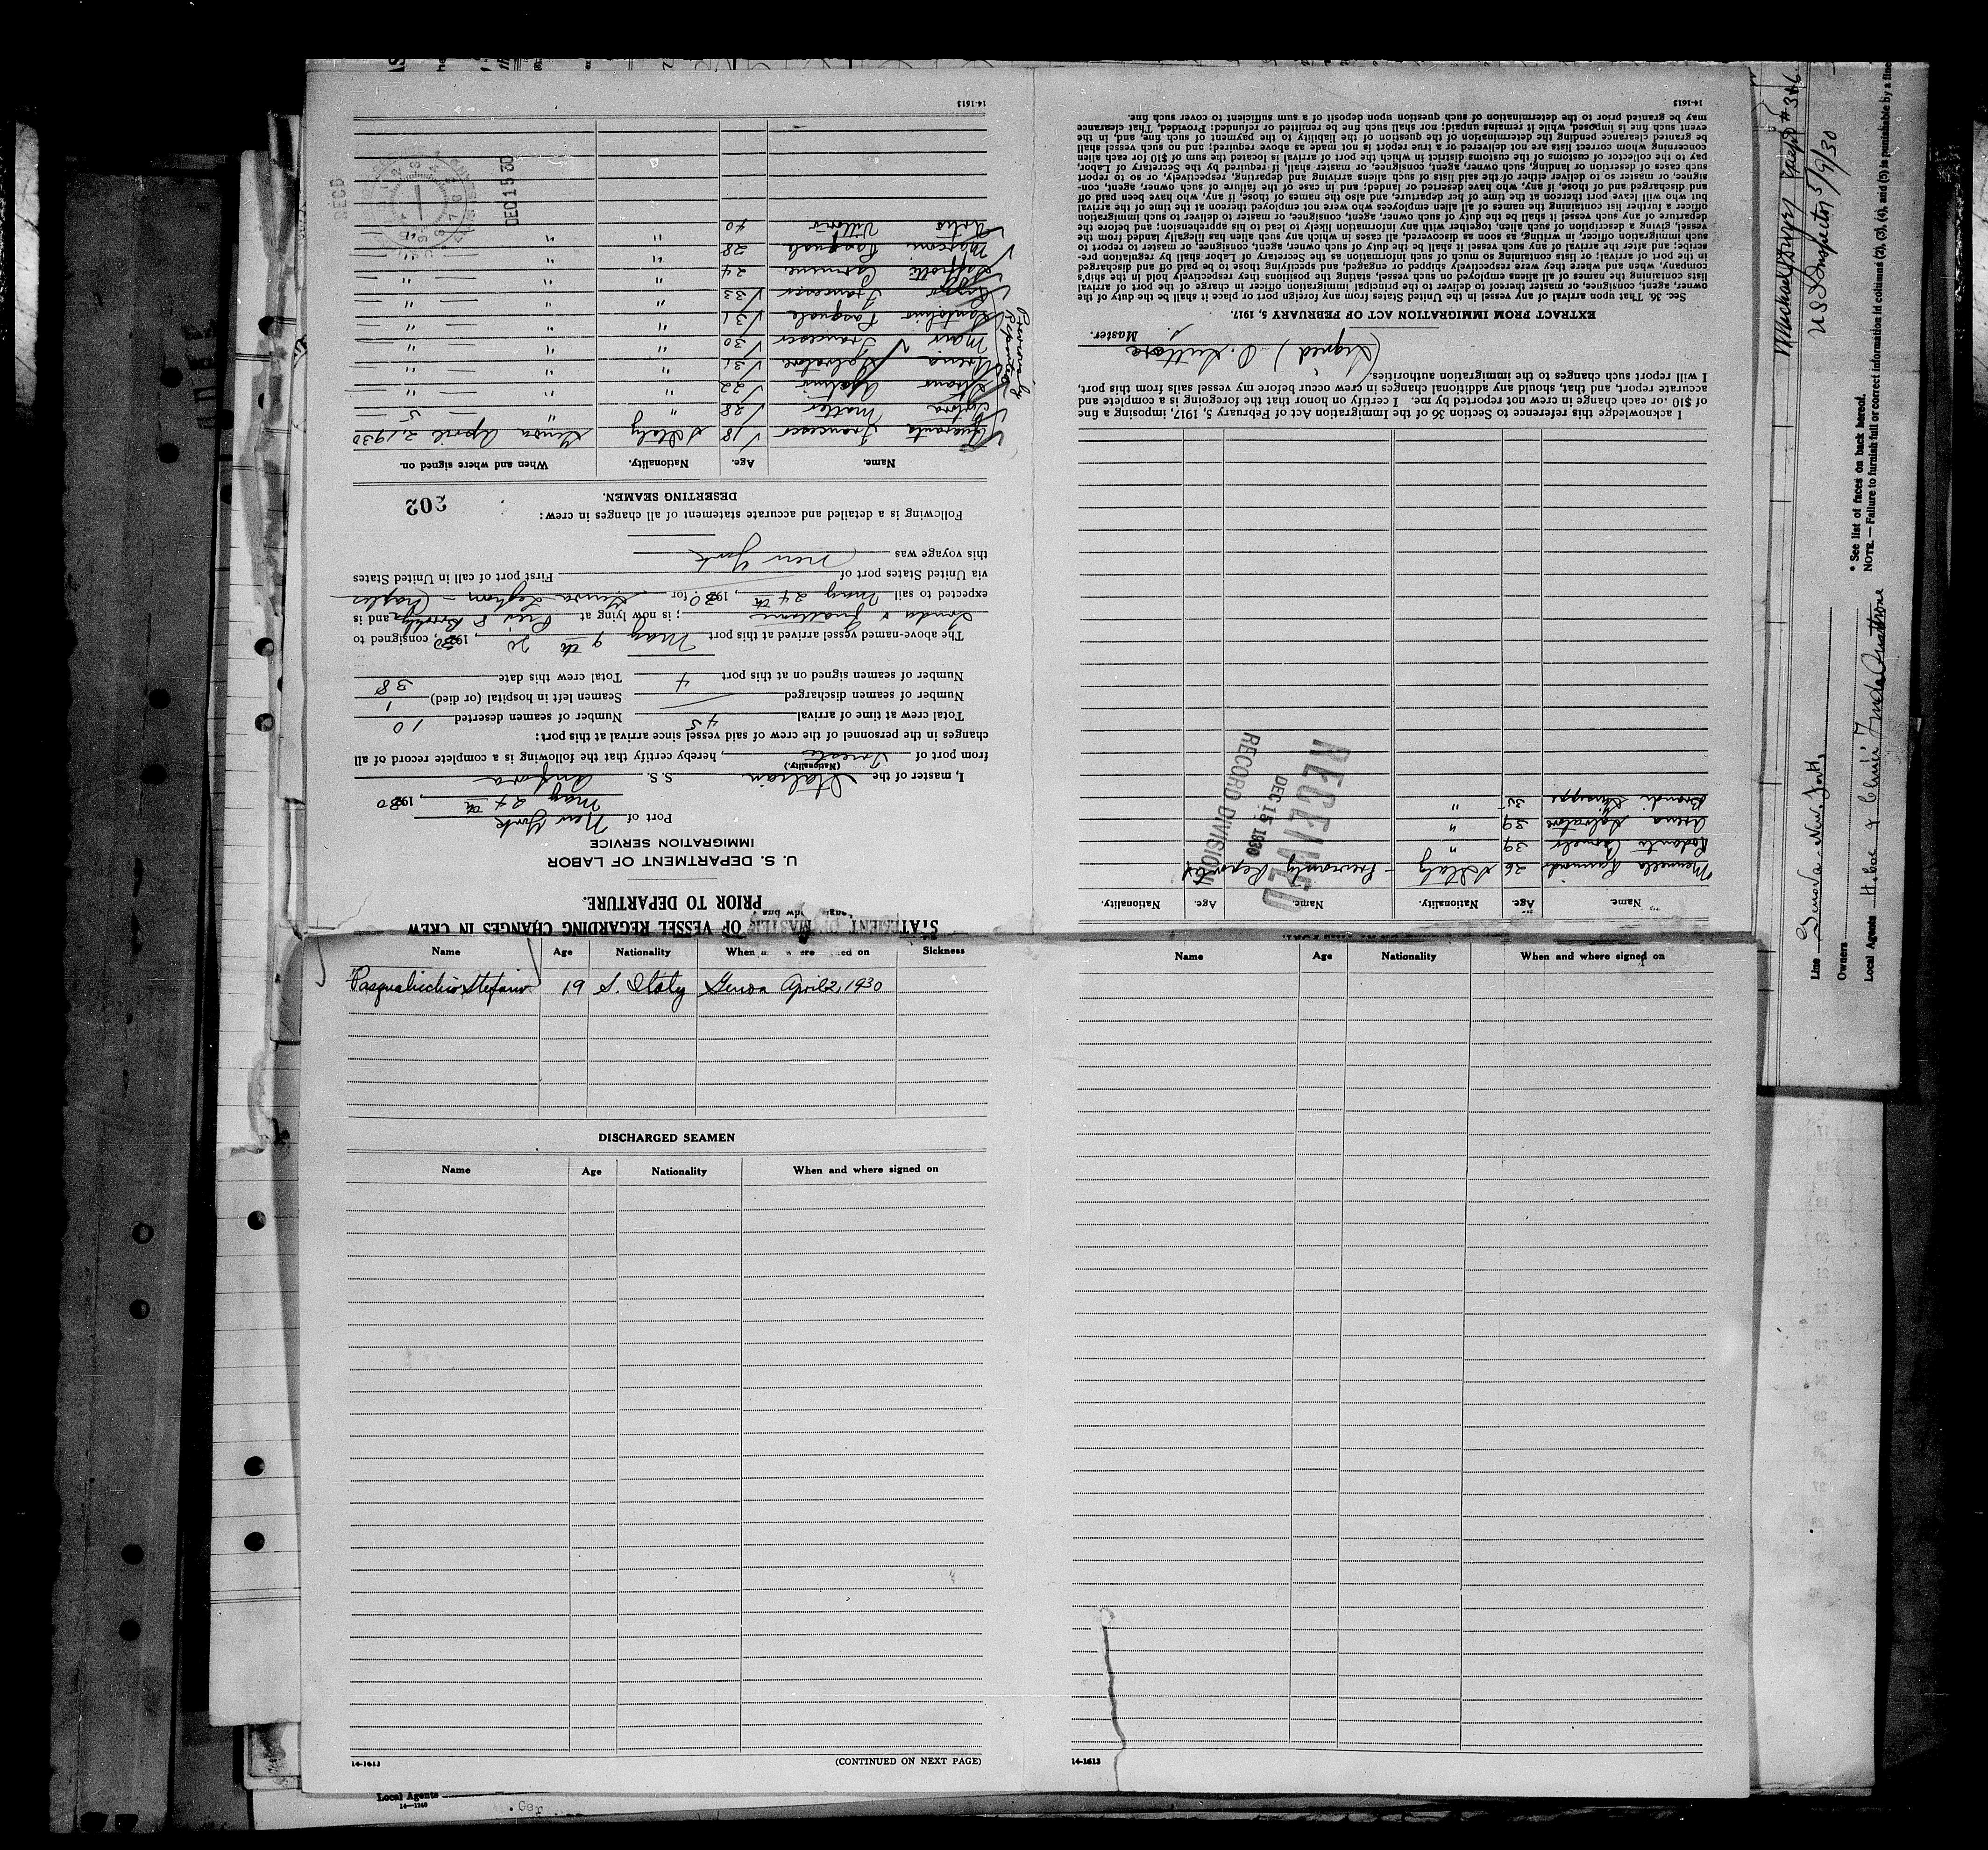 STATEMENT OF MASTER OF VESSEL REGARDING CHANGES IN CREW
PRIOR TO DEPARTURE.
U. S. DEPARTMENT OF LABOR
IMMIGRATION SERVICE
Port of New York
May 24th, 1930
I, master of the Italian S. S.
(Nationality.)
from port of Trieste, hereby certify that the following is a complete record of all
changes in the personnel of the crew of said vessel since arrival at this port:
Total crew at time of arrival 45 Number of seamen deserted 10
Number of seamen discharged Seamen left in hospital (or died) 1
Number of seamen signed on at this port 4 Total crew this date 38
The above-named vessel arrived at this port May 9th, 1930, consigned to
; is now lying at Pier Brooklyn and is
expected to sail May 24th, 1930 for Genoa Leghorn - Naples
via United States port of First port of call in United States
this voyage was New York
Following is a detailed and accurate statement of all changes in crew:
202
DESERTING SEAMEN.
Name. Age. Nationality. When and where signed on.
Quaranta Francesco 18 S Italy Genoa April 2, 1930
28 " 5
22 "
Arena Salvatore 31 "
Francesco 30 "
Pasquale 31 "
Francesco 33 "
Carmine 24 "
Pasquale 28 "
Vittorio 40 "
Previously Reported
REC'D
DEC 15 30
14-1613
Name. Age. Nationality. Name. Age. Nationality.
26 S Italy - Previously Reported
Carmelo 39 "
Arena Salvatore 39 "
Giuseppe 35 "
RECEIVED
DEC 15 1930
RECORD DIVISION
I acknowledge this reference to Section 36 of the Immigration Act of February 5, 1917, imposing a fine
of $10 for each change in crew not reported by me. I certify on honor that the foregoing is a complete and
accurate report, and that, should any additional changes in crew occur before my vessel sails from this port,
I will report such changes to the immigration authorities.
(Signed)
Master.
EXTRACT FROM IMMIGRATION ACT OF FEBRUARY 5, 1917.
Sec. 36. That upon arrival of any vessel in the United States from any foreign port or place it shall be the duty of the
owner, agent, consignee, or master thereof to deliver to the principal immigration officer in charge of the port of arrival
lists containing the names of all aliens employed on such vessel, stating the positions they respectively hold in the ship's
company, when and where they were respectively shipped or engaged, and specifying those to be paid off and discharged
in the port of arrival; or lists containing so much of such information as the Secretary of Labor shall by regulation pre-
scribe; and after the arrival of any such vessel it shall be the duty of such owner, agent, consignee, or master to report
to such immigration officer, in writing, as soon as discovered, all cases in which any such alien has illegally landed from the
vessel, giving a description of such alien, together with any information likely to lead to his apprehension; and before the
departure of any such vessel it shall be the duty of such owner, agent, consignee, or master to deliver to such immigration
officer a further list containing the names of all alien employees who were not employed thereon at the time of the arrival
but who will leave port thereon at the time of her departure, and also the names of those, if any, who have been paid off
and discharged and of those, if any, who have deserted or landed; and in case of the failure of such owner, agent, con-
signee, or master so to deliver either of the said lists of such aliens arriving and departing, respectively, or so to report
such cases of desertion or landing, such owner, agent, consignee, or master shall, if required by the Secretary of Labor,
pay to the collector of customs of the customs district in which the port of arrival is located the sum of $10 for each alien
concerning whom correct lists are not delivered or a true report is not made as above required; and no such vessel shall
be granted clearance pending the determination of the question of the liability to the payment of such fine, and in the
event such fine is imposed, while it remains unpaid; nor shall such fine be remitted or refunded: Provided, That clearance
may be granted prior to the determination of such question upon deposit of a sum sufficient to cover such fine.
14-1613
Name Age Nationality When and where signed on Sickness
Pasqualicchio Stefano 19 S. Italy Genoa April 2, 1930
DISCHARGED SEAMEN
Name Age Nationality When and where signed on
14-1613 (CONTINUED ON NEXT PAGE)
Name Age Nationality When and where signed on
14-1613
Local Agents
14-1240
US Inspector 5/9/30
Line Genova - New York
Owners
Local Agents
* See list of races on back hereof.
NOTE.—Failure to furnish full or correct information in columns (2), (3), (4), and (5) is punishable by a fine